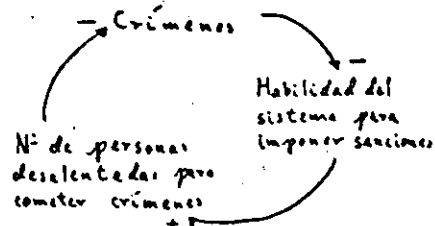 — Crímenes
—
Habilidad del
sistema para
imponer sanciones
Nº de personas
desalentadas para
cometer crímenes
+